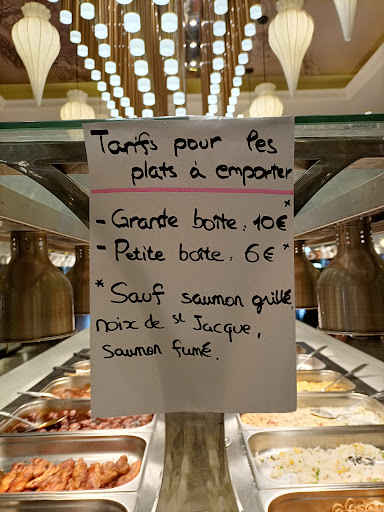 Tarifs pour les
plats à emporter
- Grande boîte : 10€ *
- Petite boîte : 6€ *
* Sauf saumon grillé,
noix de St Jacque,
saumon fumé.